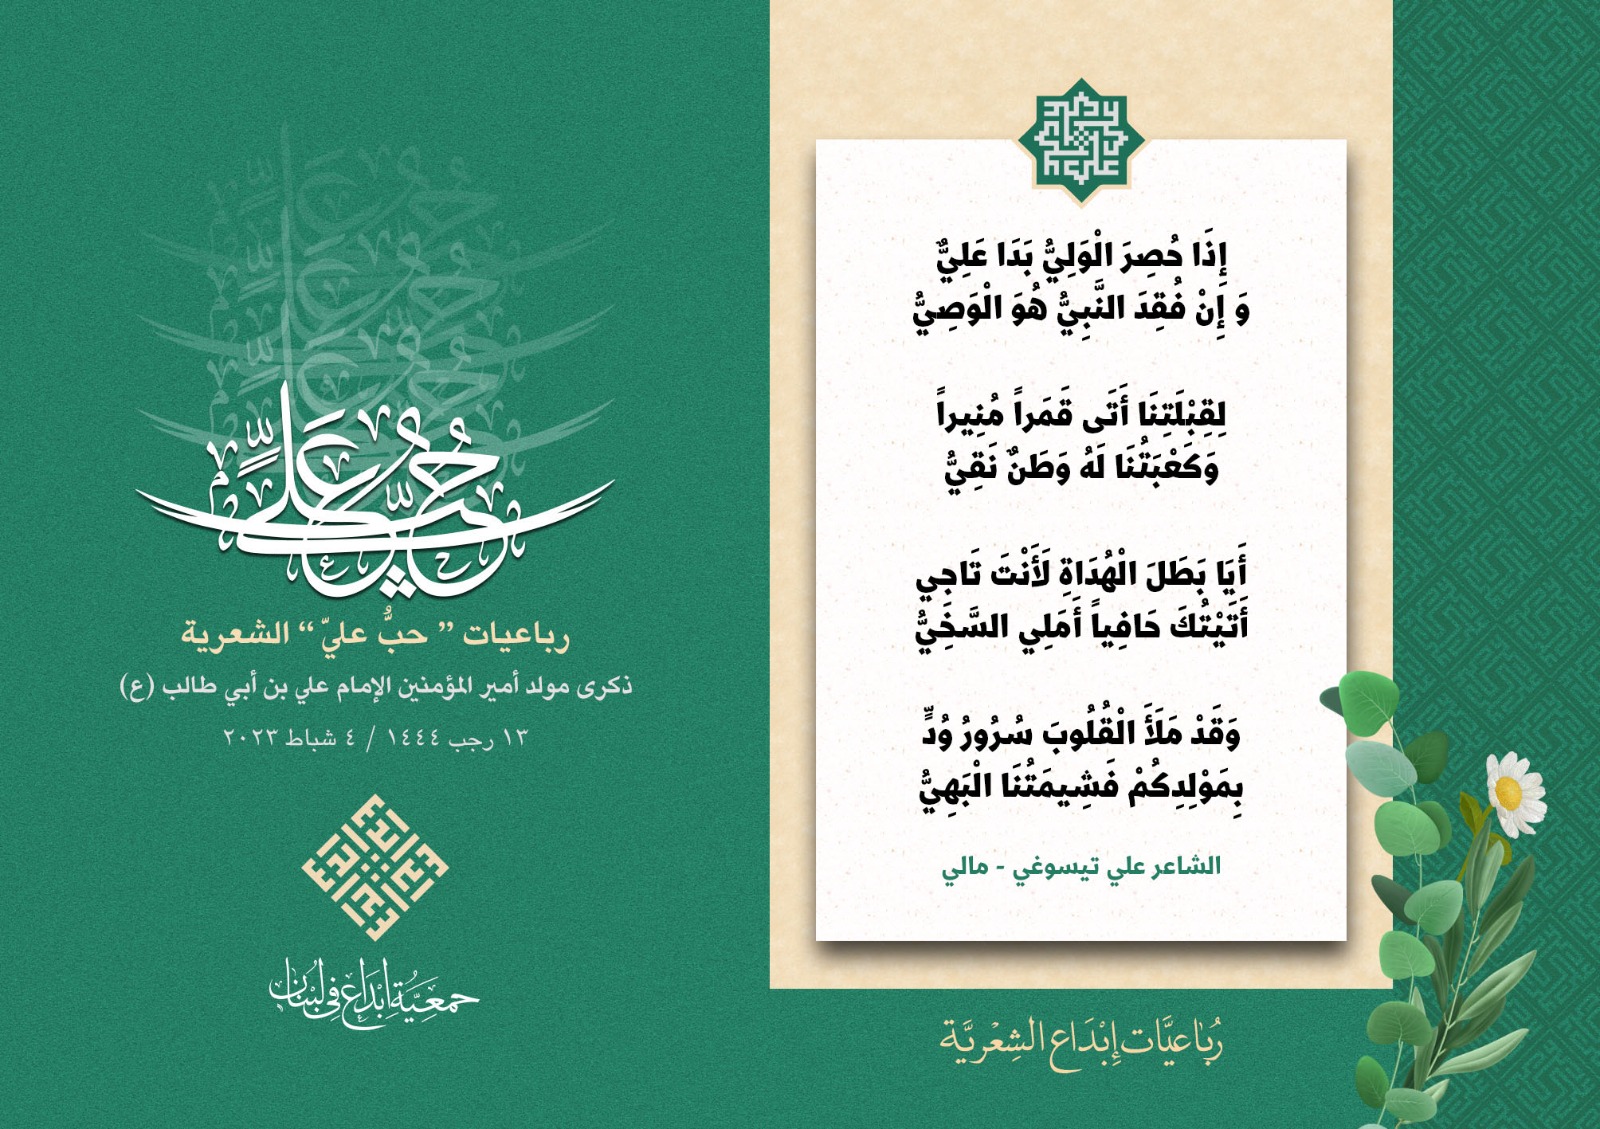 إِذَا حُصِرَ الْوَلِيُّ بَدَا عَلِيٌّ
وَ إِنْ فُقِدَ النَّبِيُّ هُوَ الْوَصِيُّ
لِقِبْلَتِنَا أَتَى قَمَراً مُنِيراً
وَكَعْبَتُنَا لَهُ وَطَنٌ نَقِيُّ
أَيَا بَطَلَ الْهُدَاةِ لَأَنْتَ تَاجِي
أَتَيْتُكَ حَافِياً أَمَلِي السَّخَيُّ
وَقَدْ مَلَأَ الْقُلُوبَ سُرُورُ وُدٍّ
بِمَوْلِدِكُمْ فَشِيمَتُنَا الْبَهِيُّ
الشاعر علي تيسوغي - مالي
رُبَاعيَّات إِبْدَاع الشِعْريَّة
حُبُّ عَلِيٍّ
رباعيات ” حبُّ عليّ “ الشعرية
ذكرى مولد أمير المؤمنين الإمام علي بن أبي طالب (ع)
١٣ رجب ١٤٤٤ / ٤ شباط ٢٠٢٣
جمعيَّة إبْدَاع في لبْنَان